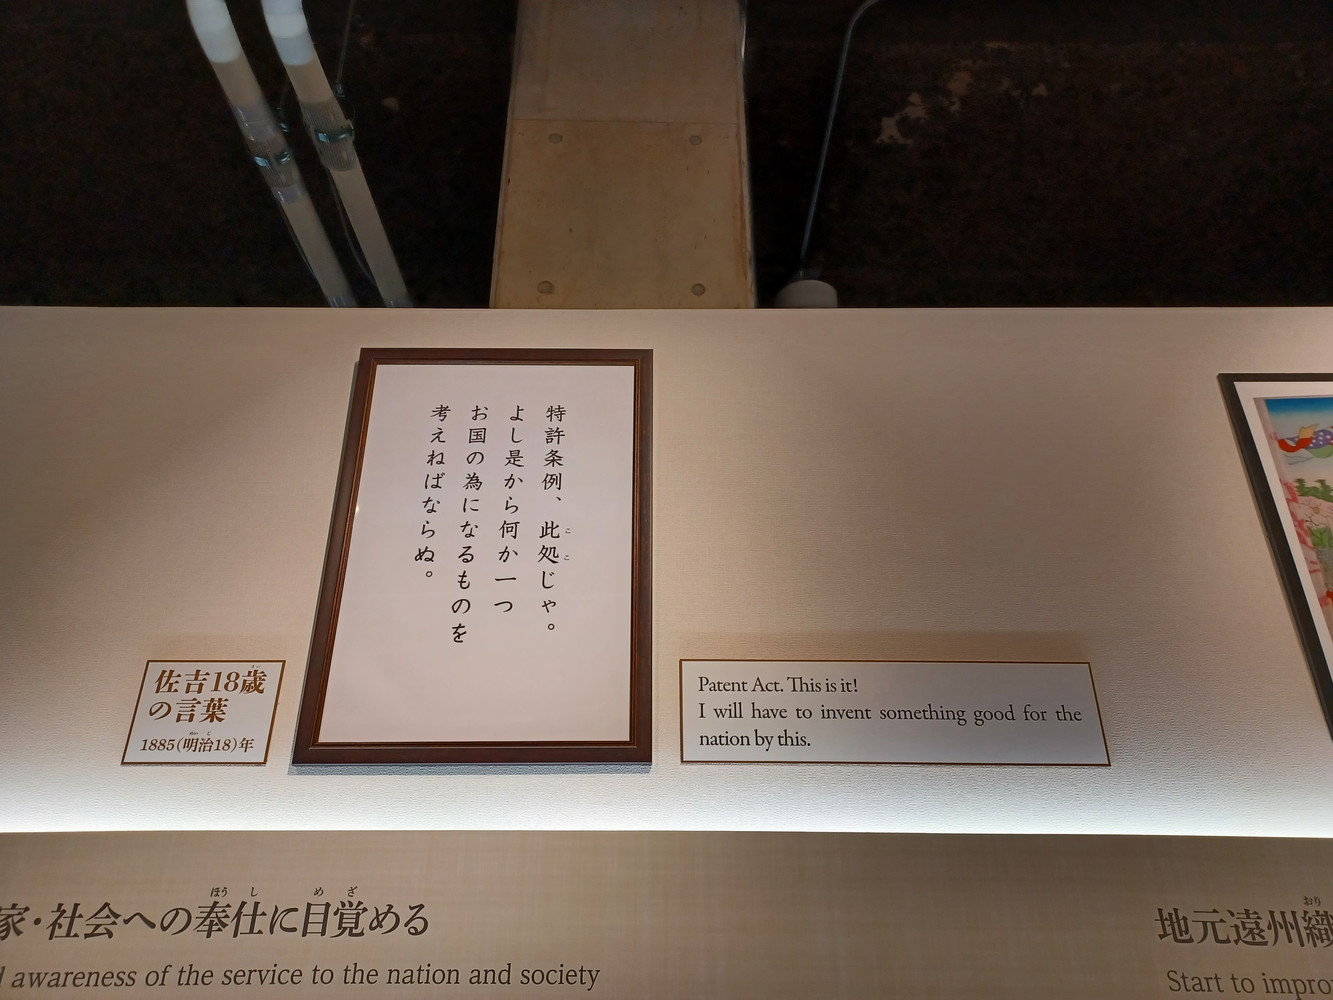 特許条例、此処じゃ。
ここ
よし是から何か一つ
お国の為になるものを
考えねばならぬ。
さい
佐吉18歳
の言葉
めいじ
1885(明治18)年
Patent Act. This is it!
I will have to invent something good for the
nation by this.
ほうし めざ
家・社会への奉仕に目覚める
awareness of the service to the nation and society
おり
地元遠州織
Start to impro